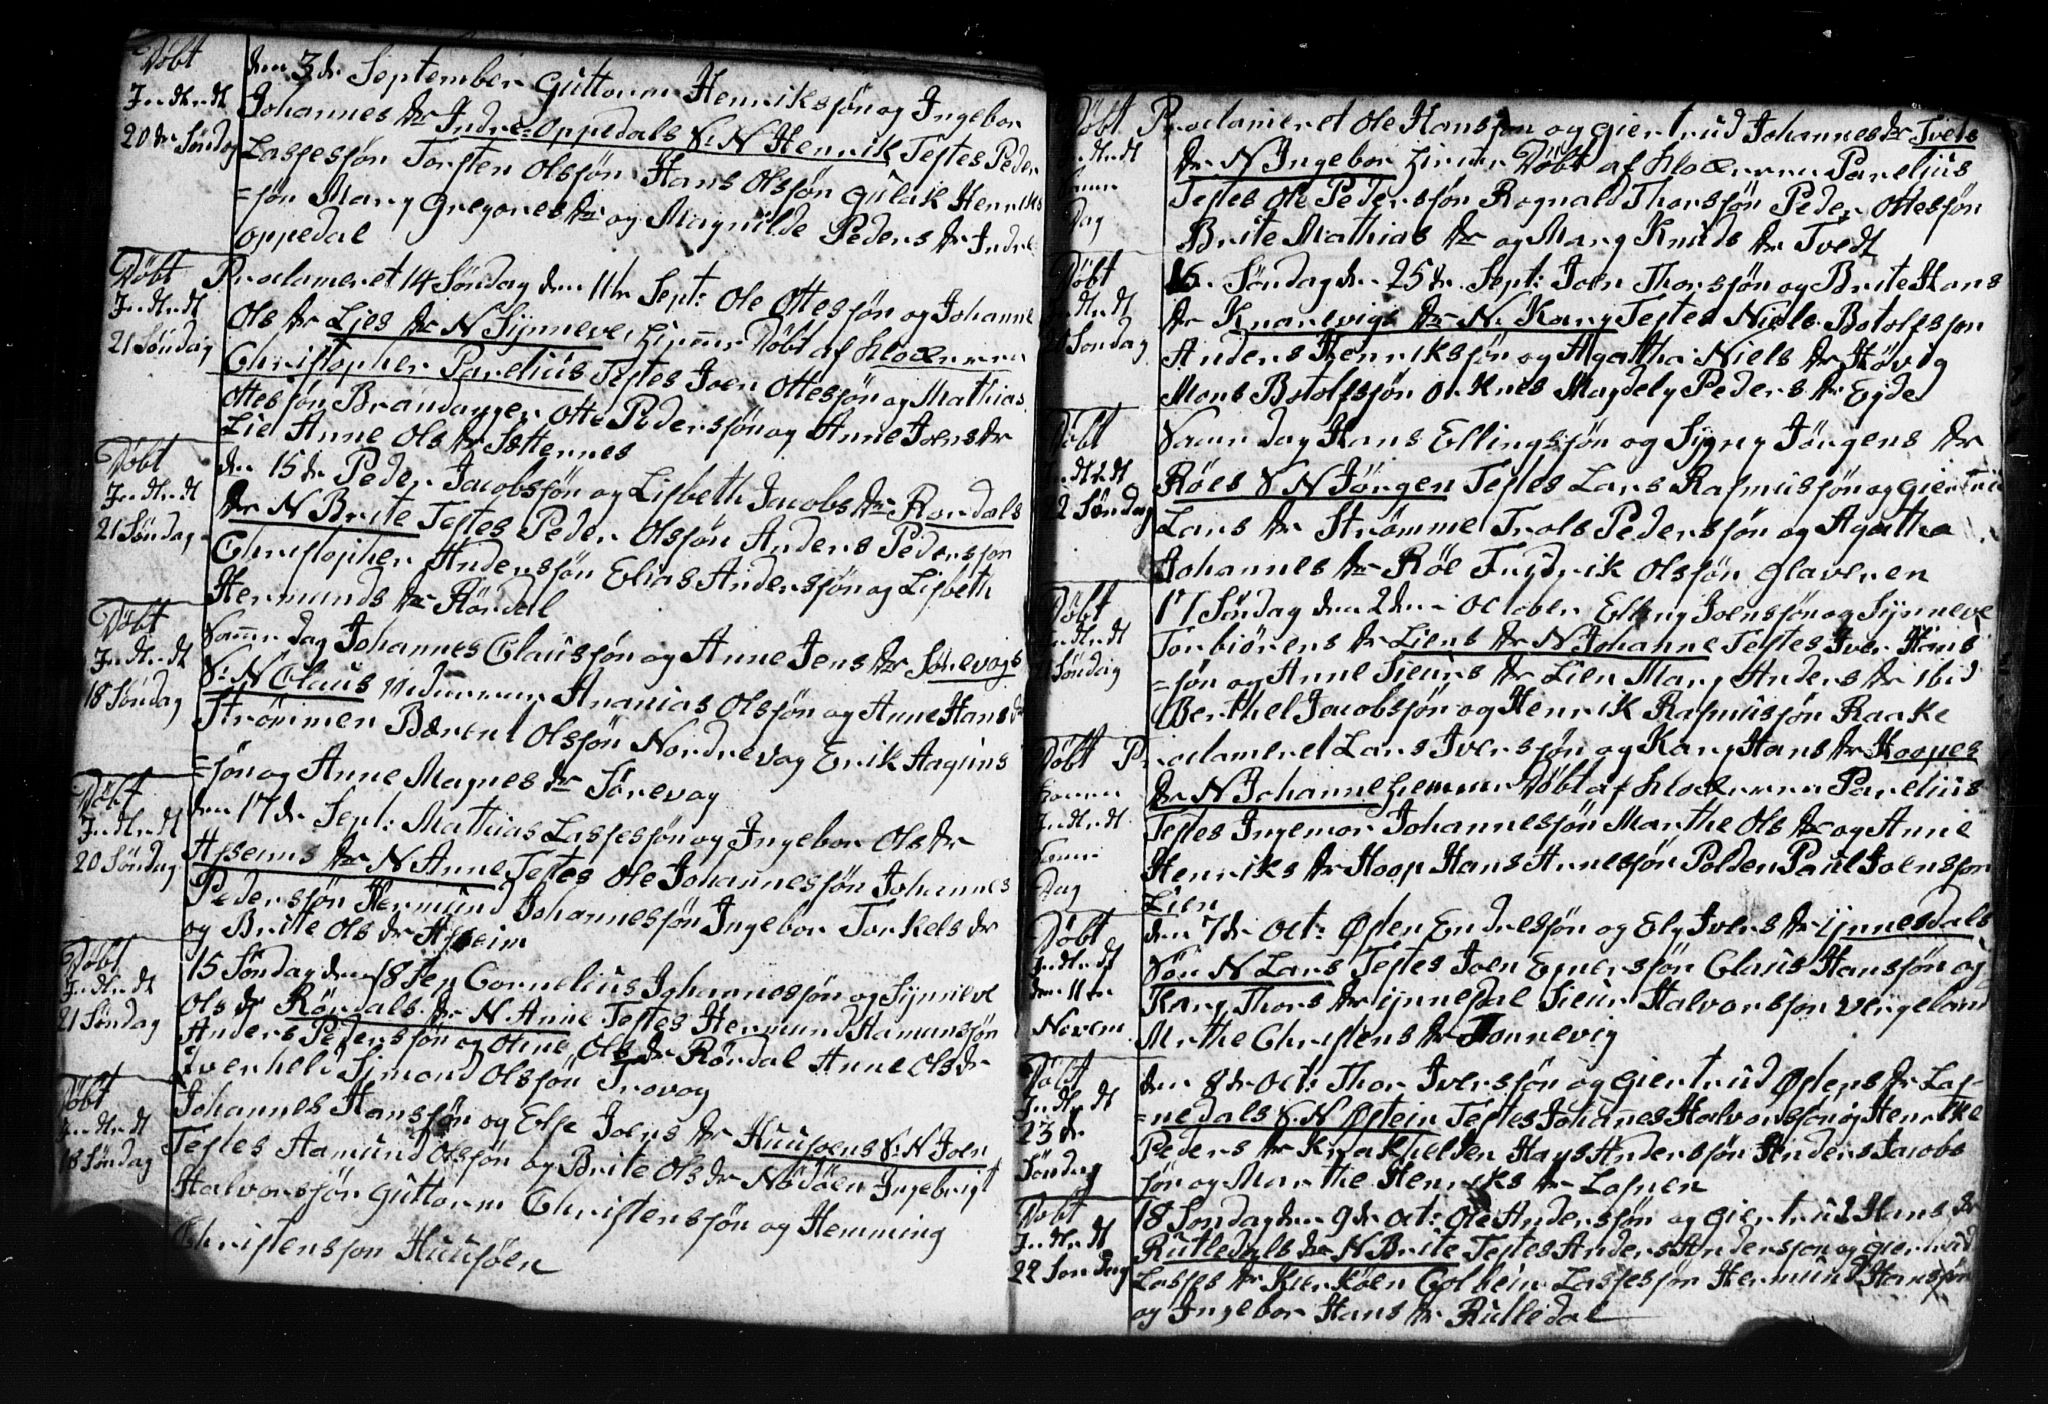 Døbt
J..H..H
20de Søndag
den 3de September Guttorm Henriksøn og Ingebor
Johannes dr Indre Oppedals S: N Henrik Testes Peder
Lassesøn Torsten Olssøn Hans Olsøn Gulak Henriks
=søn Mary Gregores dr og Magnilde Peders dr Indre
Oppedal
Døbt
J..H..H
21 Søndag
Proclameret 14 Søndag den 11te Sept: Ole Ottesøn og Johanne
Ols dr Lies dr N Synneve, Døbt af Klockeren
Christopher Parelius Testes Joen Ottesøn og Mathias
Ottesøn Brandanger Otte Pedersøn og Anne Joens dr
Lie Anne Ols dr Sættennes
Døbt
J..H..H
21 Søndag
den 15de Peder Jacobsøn og Lisbeth Jacobs dr Rørdals
dr N Brite Testes Peder Olsøn Anders Pedersøn
Christopher Andersøn Elias Andersøn og Lisbeth
Hermunds dr Rørdal
Døbt
J..H..H
18 Søndag
Samme dag Johannes Clausøn og Anne Jens dr Sørevogs
S: N Claus Ananias Olsøn og Anne Hans dr
Strømmen Bærent Olsøn Nordrevog Erik Aaguns
=søn og Anne Magnes dr Sørevog
Døbt
J..H..H
20 Søndag
den 17de Sept: Mathias Lassesøn og Ingebor Ols dr
Afseims dr N Anne Testes Ole Johannesøn Johannes
Pedersøn Hermund Johannesøn Ingebor Torkels dr
og Brite Ols dr Afseim
Døbt
J..H..H
21 Søndag
15 Søndag den 18 Sep Cornelius Johannesøn og Synneve
Ols dr Rørdals dr N Anne Testes Hermund Hamunsøn
Anders Pedersøn og Oline Ols dr Rørdal Anne Ols dr
Symond Olsøn Trovog
Døbt
J..H..H
18 Søndag
Johannes Hansøn og Else Joens dr Huusøens S: N Joen
Testes Aamund Olsøn og Brite Ols dr Nødøen Ingebrigt
Halvorsøn Guttorm Christensøn og Hemming
Christensøn Huusøen
Døbt
J..H..H
Samme
Dag
Proclameret Ole Hansøn og Giertrud Johannes dr Tvets
dr N Ingebor Døbt af Klockeren Parelius
Testes Ole Pedersøn Rognald Thorsøn Peder Ottesøn
Brite Mathias dr og Mary Knuds dr Tvedt
Døbt
J..H..H
Søndag
16. Søndag den 25de Sept: Joen Thorsøn og Brite Hans
dr Knarevigs dr N. Kary Testes Niels Botolfsøn
Anders Henriksøn og Agatha Niels dr Høvig
Mons Botolfsøn Orknes Magdely Peders dr Eyde
Døbt
J..H..H
22 Søndag
Samme dag Hans Ellingsøn og Sygny Jørgens dr
Røes S N Jørgen Testes Lars Rasmusøn og Giertrud
Lars dr Strømme Trols Pedersøn og Agatha
Johannes dr Røe Fridrik Olsøn Glaveren
Døbt
J..H..H
21 Søndag
17 Søndag den 2den October Elling Joensøn og Synneve
Torbiørens dr Liens dr N Johanne Testes Iver Hans
=søn og Anne Sieurs dr Lien Mary Anders dr ibid
Berthel Jacobsøn og Henrik Rasmusøn Raake
Døbt
J..H..H
Samme
Dag
Proclameret Lars Iversøn og Kary Hans dr Hoopes
dr N Johanne hiemme Døbt af Klockeren Parelius
Testes Ingemor Johannesøn Marthe Ols dr og Anne
Henriks dr Hoop Hans Arnesøn Polden Paul Joensøn
Lien
Døbt
J..H..H
den 11te
Novem
den 7de Oct: Østen Endresøn og Ely Ivers dr Ynnesdals
Søn N Lars Testes Joen Egnersøn Claus Hansøn og
Kary Thors dr Ynnesdal Sieur Halvorsøn Vergeland
Marthe Christens dr Tonnevig
Døbt
J..H..H
23de
Søndag
den 8de Oct: Thor Iversøn og Giertrud Østens dr Las-
=nedals S. N Østein Testes Johannes Halvorsøn og Henrikke
Peders dr Hans Andersøn Anders Jacobs
søn og Marthe Henriks dr Lasnen
Døbt
J..H..H
22 Søndag
18 Søndag den 9de Oct: Ole Andersøn og Giertrud Hans dr
Rutledals dr N Brite Testes Anders Andersøn og Giertrud
Lasses dr Kierkøen Colbein Lassesøn Hermund Hansøn
og Ingebor Hans dr Rutledal